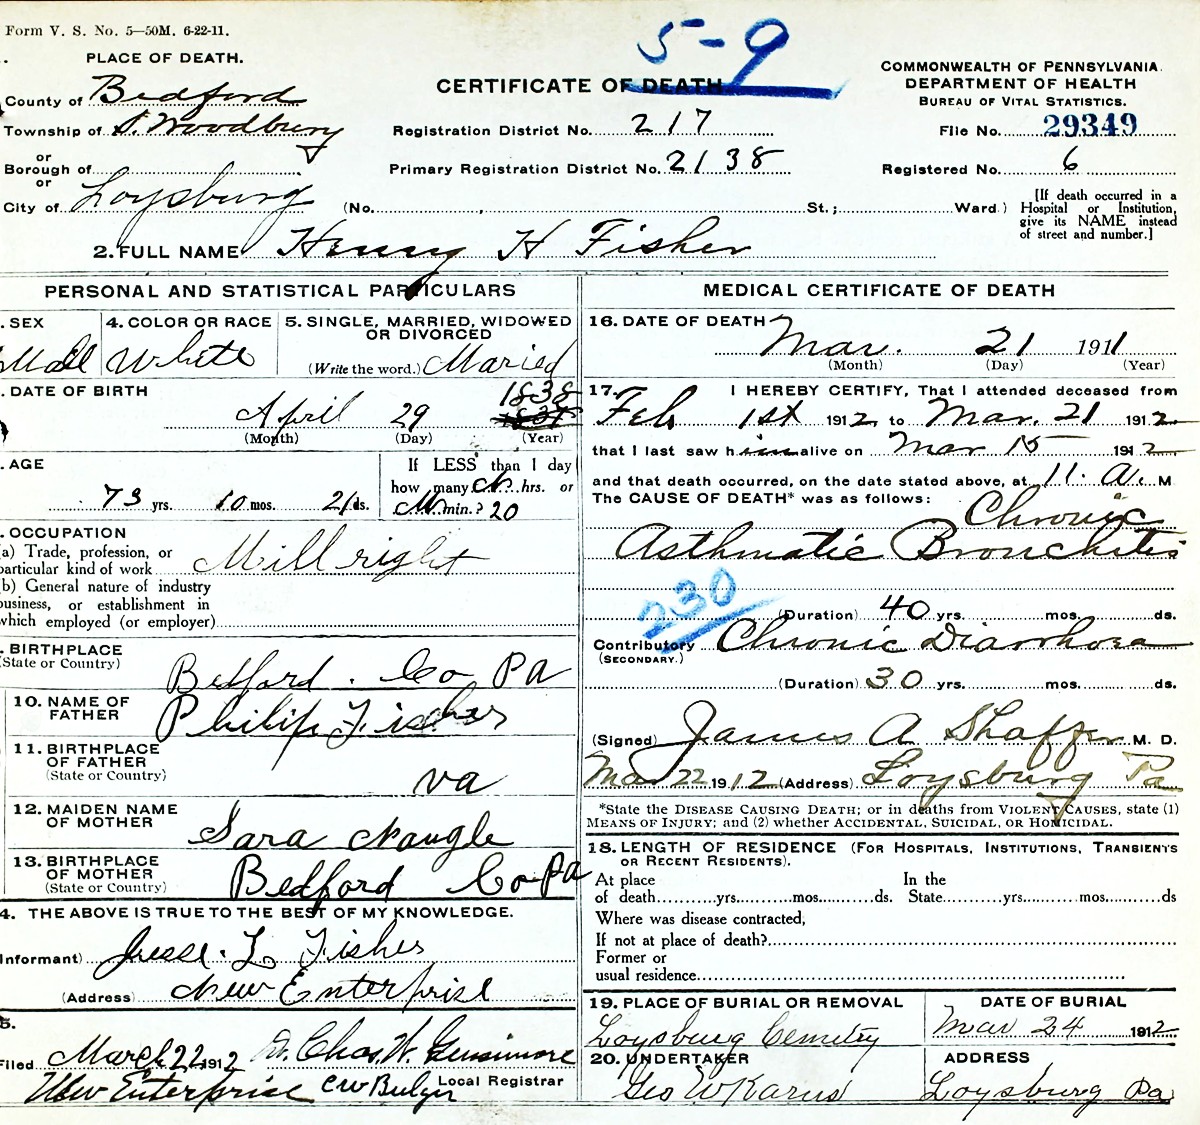 Form V. S. No. 5—50M. 6-22-11.
5-9
PLACE OF DEATH.
CERTIFICATE OF DEATH
COMMONWEALTH OF PENNSYLVANIA.
DEPARTMENT OF HEALTH
BUREAU OF VITAL STATISTICS.
County of Bedford
Township of S. Woodbury
Registration District No. 217
File No. 29349
or
Borough of
Primary Registration District No. 2138
Registered No. 6
or
City of Loysburg (No. , St.; Ward)
[If death occurred in a
Hospital or Institution,
give its NAME instead
of street and number.]
2. FULL NAME Henry H Fisher
PERSONAL AND STATISTICAL PARTICULARS
. SEX
Mall
4. COLOR OR RACE
White
5. SINGLE, MARRIED, WIDOWED
OR DIVORCED
(Write the word.) Maried
. DATE OF BIRTH
1838
April 29
(Month) (Day) (Year)
. AGE
73 yrs. 10 mos. 21 ds.
If LESS than 1 day
how many hrs. or
min.? 20
. OCCUPATION
(a) Trade, profession, or
particular kind of work Millright
(b) General nature of industry
business, or establishment in
which employed (or employer)
. BIRTHPLACE
(State or Country)
Bedford. Co Pa
10. NAME OF
FATHER
Philip Fisher
11. BIRTHPLACE
OF FATHER
(State or Country)
va
12. MAIDEN NAME
OF MOTHER
Sara Naugle
13. BIRTHPLACE
OF MOTHER
(State or Country)
Bedford Co Pa
4. THE ABOVE IS TRUE TO THE BEST OF MY KNOWLEDGE.
Informant) Jesse. L Fisher
(Address) New Enterprise
5.
Filed March 22 1912 Dr. Chas. W. Gensimore
New Enterprise CW Bulger Local Registrar
MEDICAL CERTIFICATE OF DEATH
16. DATE OF DEATH
Mar. 21 1911
(Month) (Day) (Year)
17. I HEREBY CERTIFY, That I attended deceased from
Feb 1st 1912 to Mar. 21 1912
that I last saw him alive on Mar 15 1912
and that death occurred, on the date stated above, at 11. A. M
The CAUSE OF DEATH* was as follows:
Chronic
Asthmatic Bronchitis
230
(Duration) 40 yrs. mos. ds.
Contributory Chronic Diarrhoea
(SECONDARY.)
(Duration) 30 yrs. mos. ds.
(Signed) James A Shaffer M. D.
Mar 22 1912 (Address) Loysburg Pa
*State the DISEASE CAUSING DEATH; or in deaths from VIOLENT CAUSES, state (1)
MEANS OF INJURY; and (2) whether ACCIDENTAL, SUICIDAL, OR HOMICIDAL.
18. LENGTH OF RESIDENCE (FOR HOSPITALS, INSTITUTIONS, TRANSIENTS
OR RECENT RESIDENTS).
At place In the
of death yrs. mos. ds. State yrs. mos. ds
Where was disease contracted,
If not at place of death?
Former or
usual residence
19. PLACE OF BURIAL OR REMOVAL
Loysburg Cemetry
DATE OF BURIAL
Mar 24 1912
20. UNDERTAKER
Geo W Karns
ADDRESS
Loysburg Pa